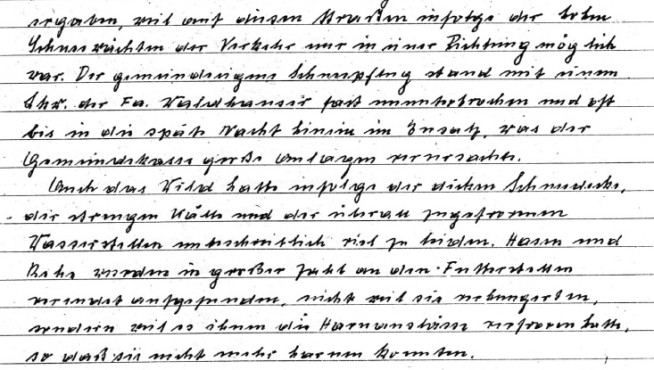 ergaben, weil auf diesen Straßen infolge der hohen
Schneewächten der Verkehr nur in einer Richtung möglich
war. Der gemeindeeigene Schneepflug stand mit einem
Lkw. der Fa. fast ununterbrochen und oft
bis in die späte Nacht hinein im Einsatz, was der
Gemeindekasse große Auslagen verursachte.
Auch das Wild hatte infolge der dicken Schneedecke,
der strengen Kälte und der überall zugefrorenen
Wasserstellen unbeschreiblich viel zu leiden. Hasen und
Rehe wurden in großer Zahl an den Futterstellen
verendet aufgefunden, nicht weil sie verhungerten,
sondern weil es ihnen die Harnauslässe verfroren hatte,
so daß sie nicht mehr harnen konnten.